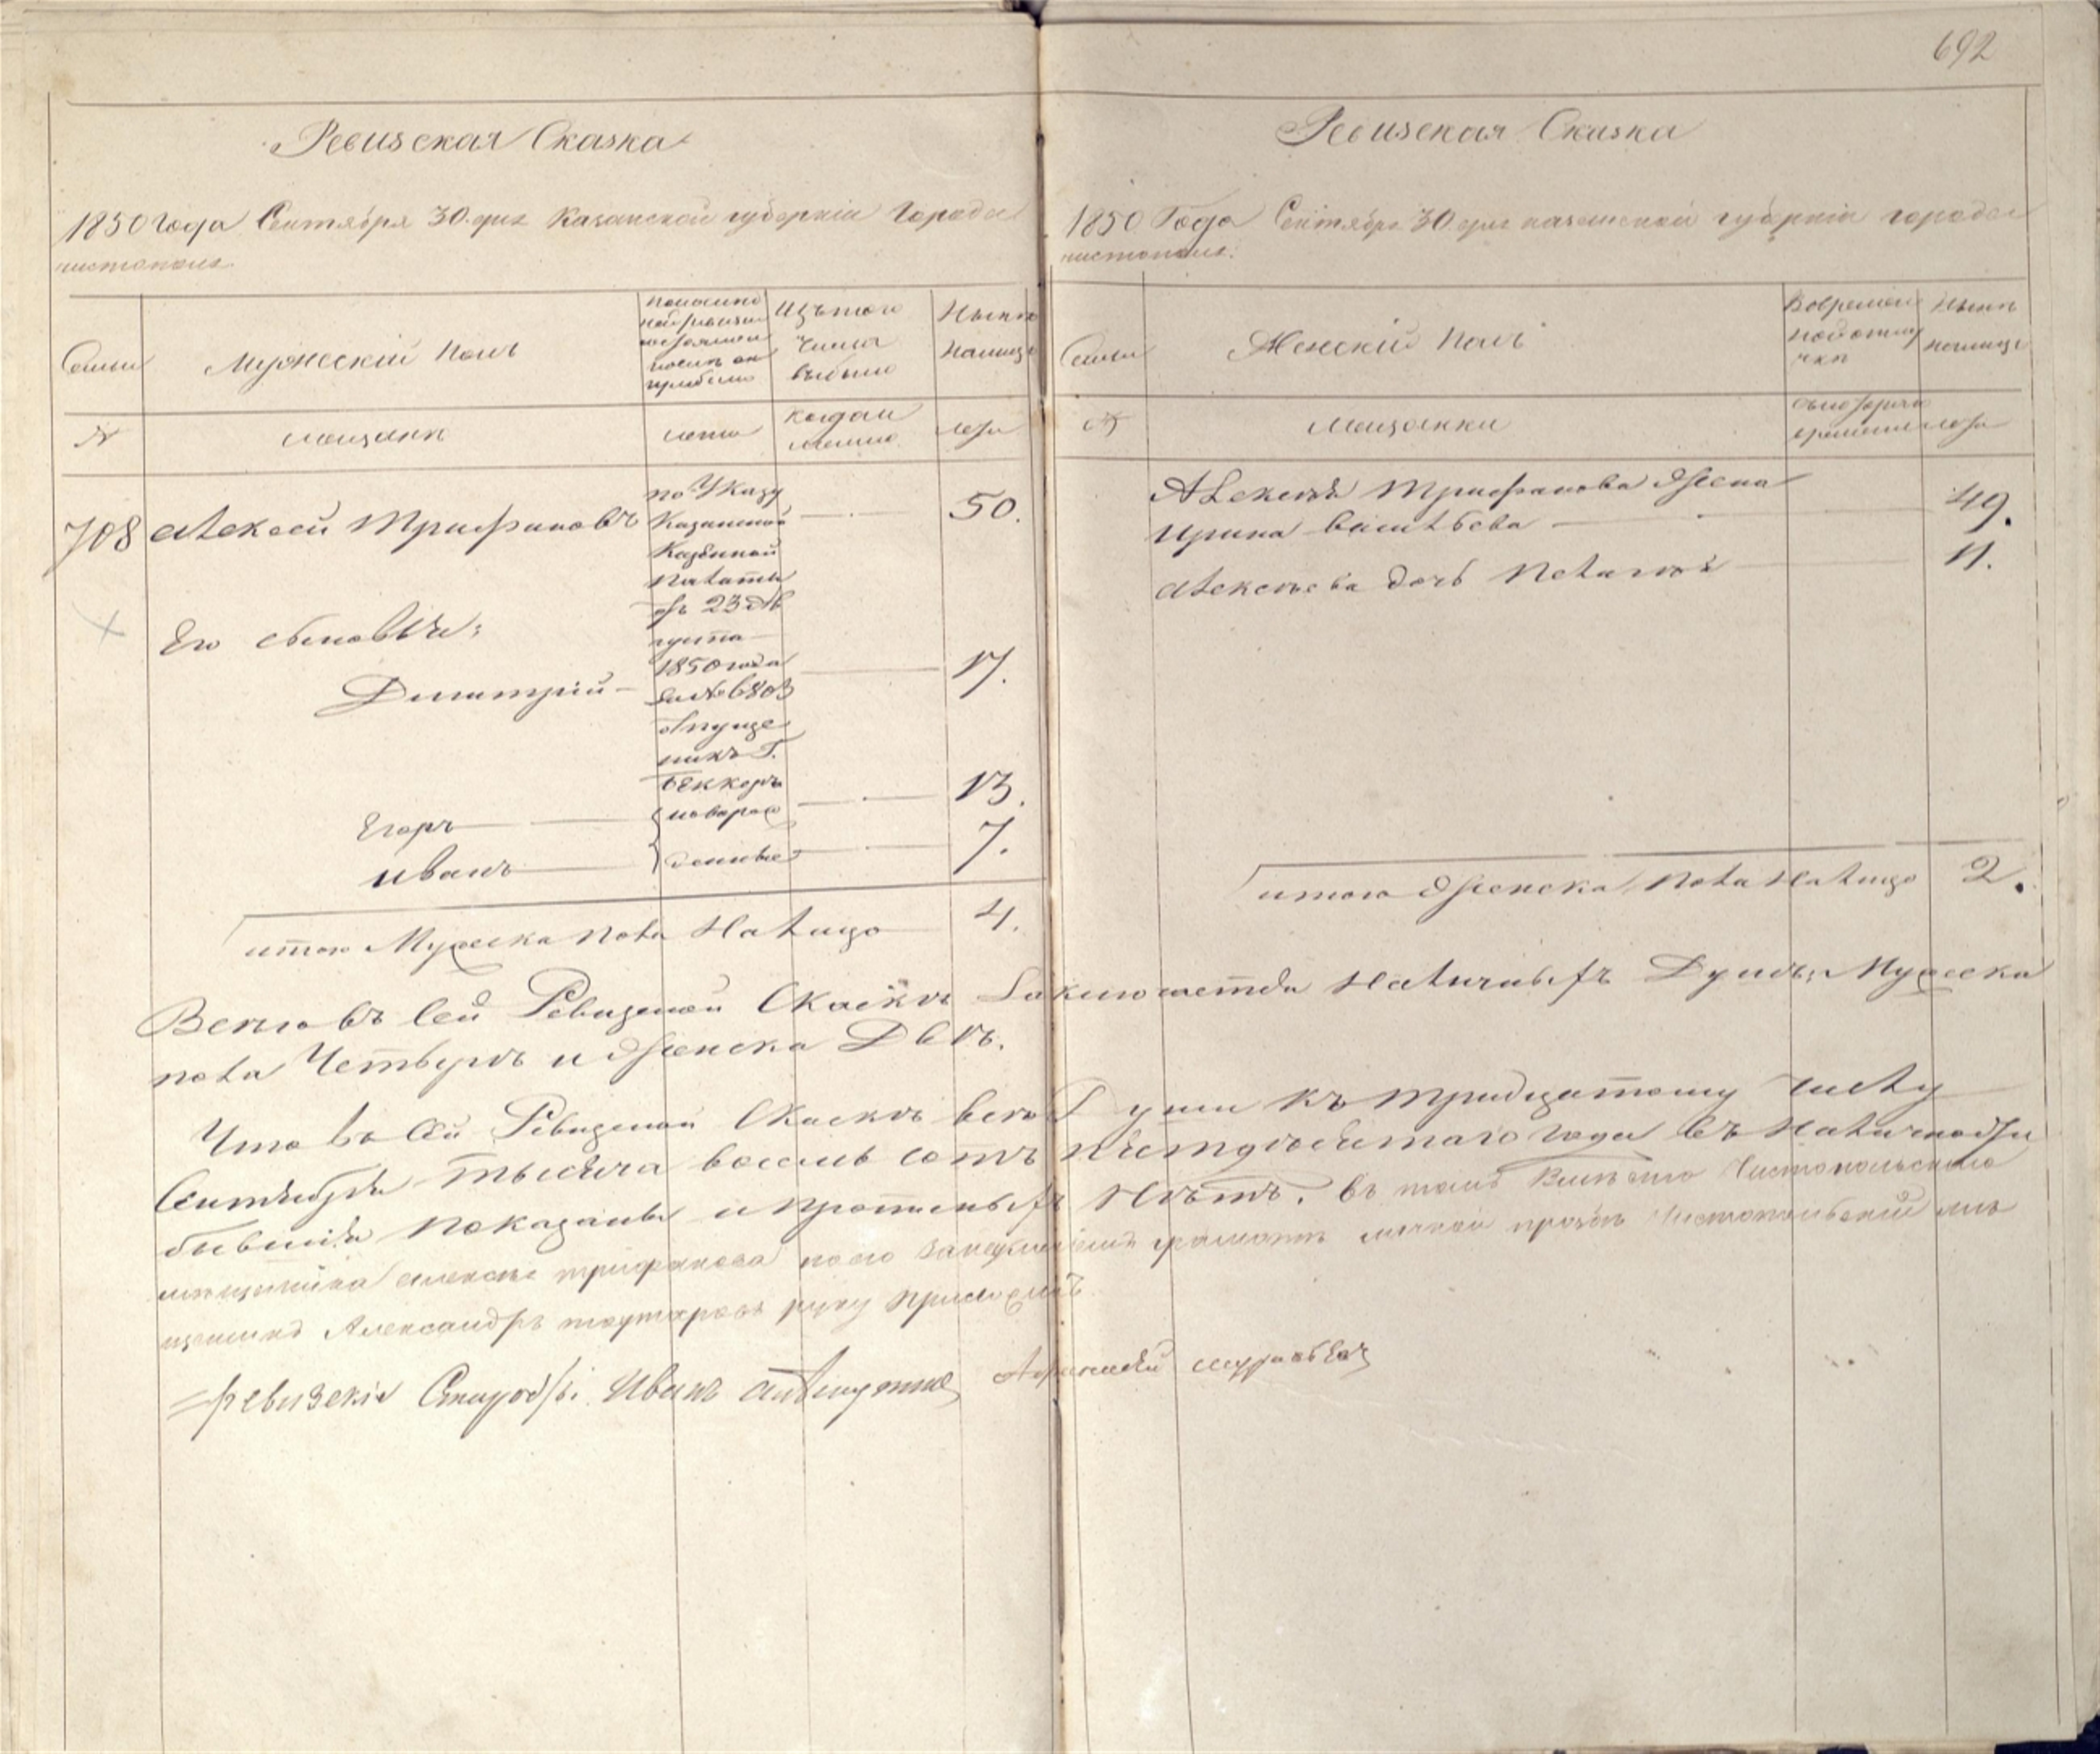 692
Ревизская Сказка
1850 года Сентября 30. дня Казанской губерніи Города
чистополя
Семьи
Мужескій полъ
Изътого
числа
выбыло
Нынѣ
налицо
№
мещане
лета
когда и
лета
708
Алексей Трифановъ
по Указу
Казанской
Казенной
палаты
отъ 23 Ав
густа
1850 года
за № 6803
отпуще
никъ Г.
Беккеръ
50.
Его сыновья:
Димитрій
17.
Егоръ
13.
Иванъ
7.
итого Мужеска пола Налицо 4.
Ревизская Сказка
1850 Года Сентября 30 дня казанской губерніи города
чистополя.
Семьи
Женскій полъ
Вовремен
ной отлу
чки
Нынѣ
налицо
№
Мещанки
лета
Алексея Трифанова жена
Ирина Васильева
49.
Алексеева дочь Пелагея
11.
итого женска пола Налицо 2.
Всего въ сей Ревизской Сказкѣ Заключается Наличныхъ Душъ: Мужеска
пола Четверо и женска Двѣ.
Что въ сей Ревизской Сказкѣ все Души къ тридцатому числу
Сентября тысяча восемь сотъ пятдесятаго года въ Наличности
бывшія показаны и прописныхъ Нѣтъ. Въ томъ Вместо Чистопольскаго
мещанина Алексея Трифанова по его грамоте личной прозбе Чистопольскій ме
щанинъ Александръ руку приложилъ
Ревизскіе Старосты Иванъ